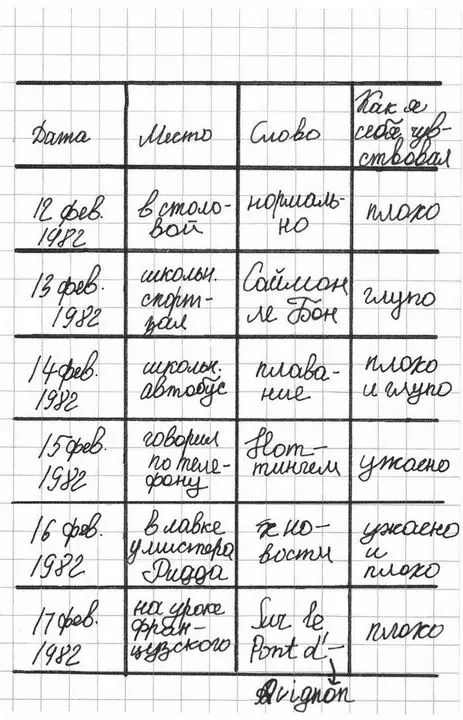 Дата
Место
Слово
Как я
себя чув-
ствовал
12 фев.
1982
в столо-
вой
нормаль-
но
плохо
13 фев.
1982
школьн.
спорт-
зал
Саймон
ле Бон
глупо
14 фев.
1982
школьн.
автобус
плава-
ние
плохо
и глупо
15 фев.
1982
говорил
по теле-
фону
Нот-
тингем
ужасно
16 фев.
1982
в лавке
у мистера
Ридда
но-
вости
ужасно
и
плохо
17 фев.
1982
на уроке
фран-
цузского
Sur le
Pont d'-
Avignon
плохо